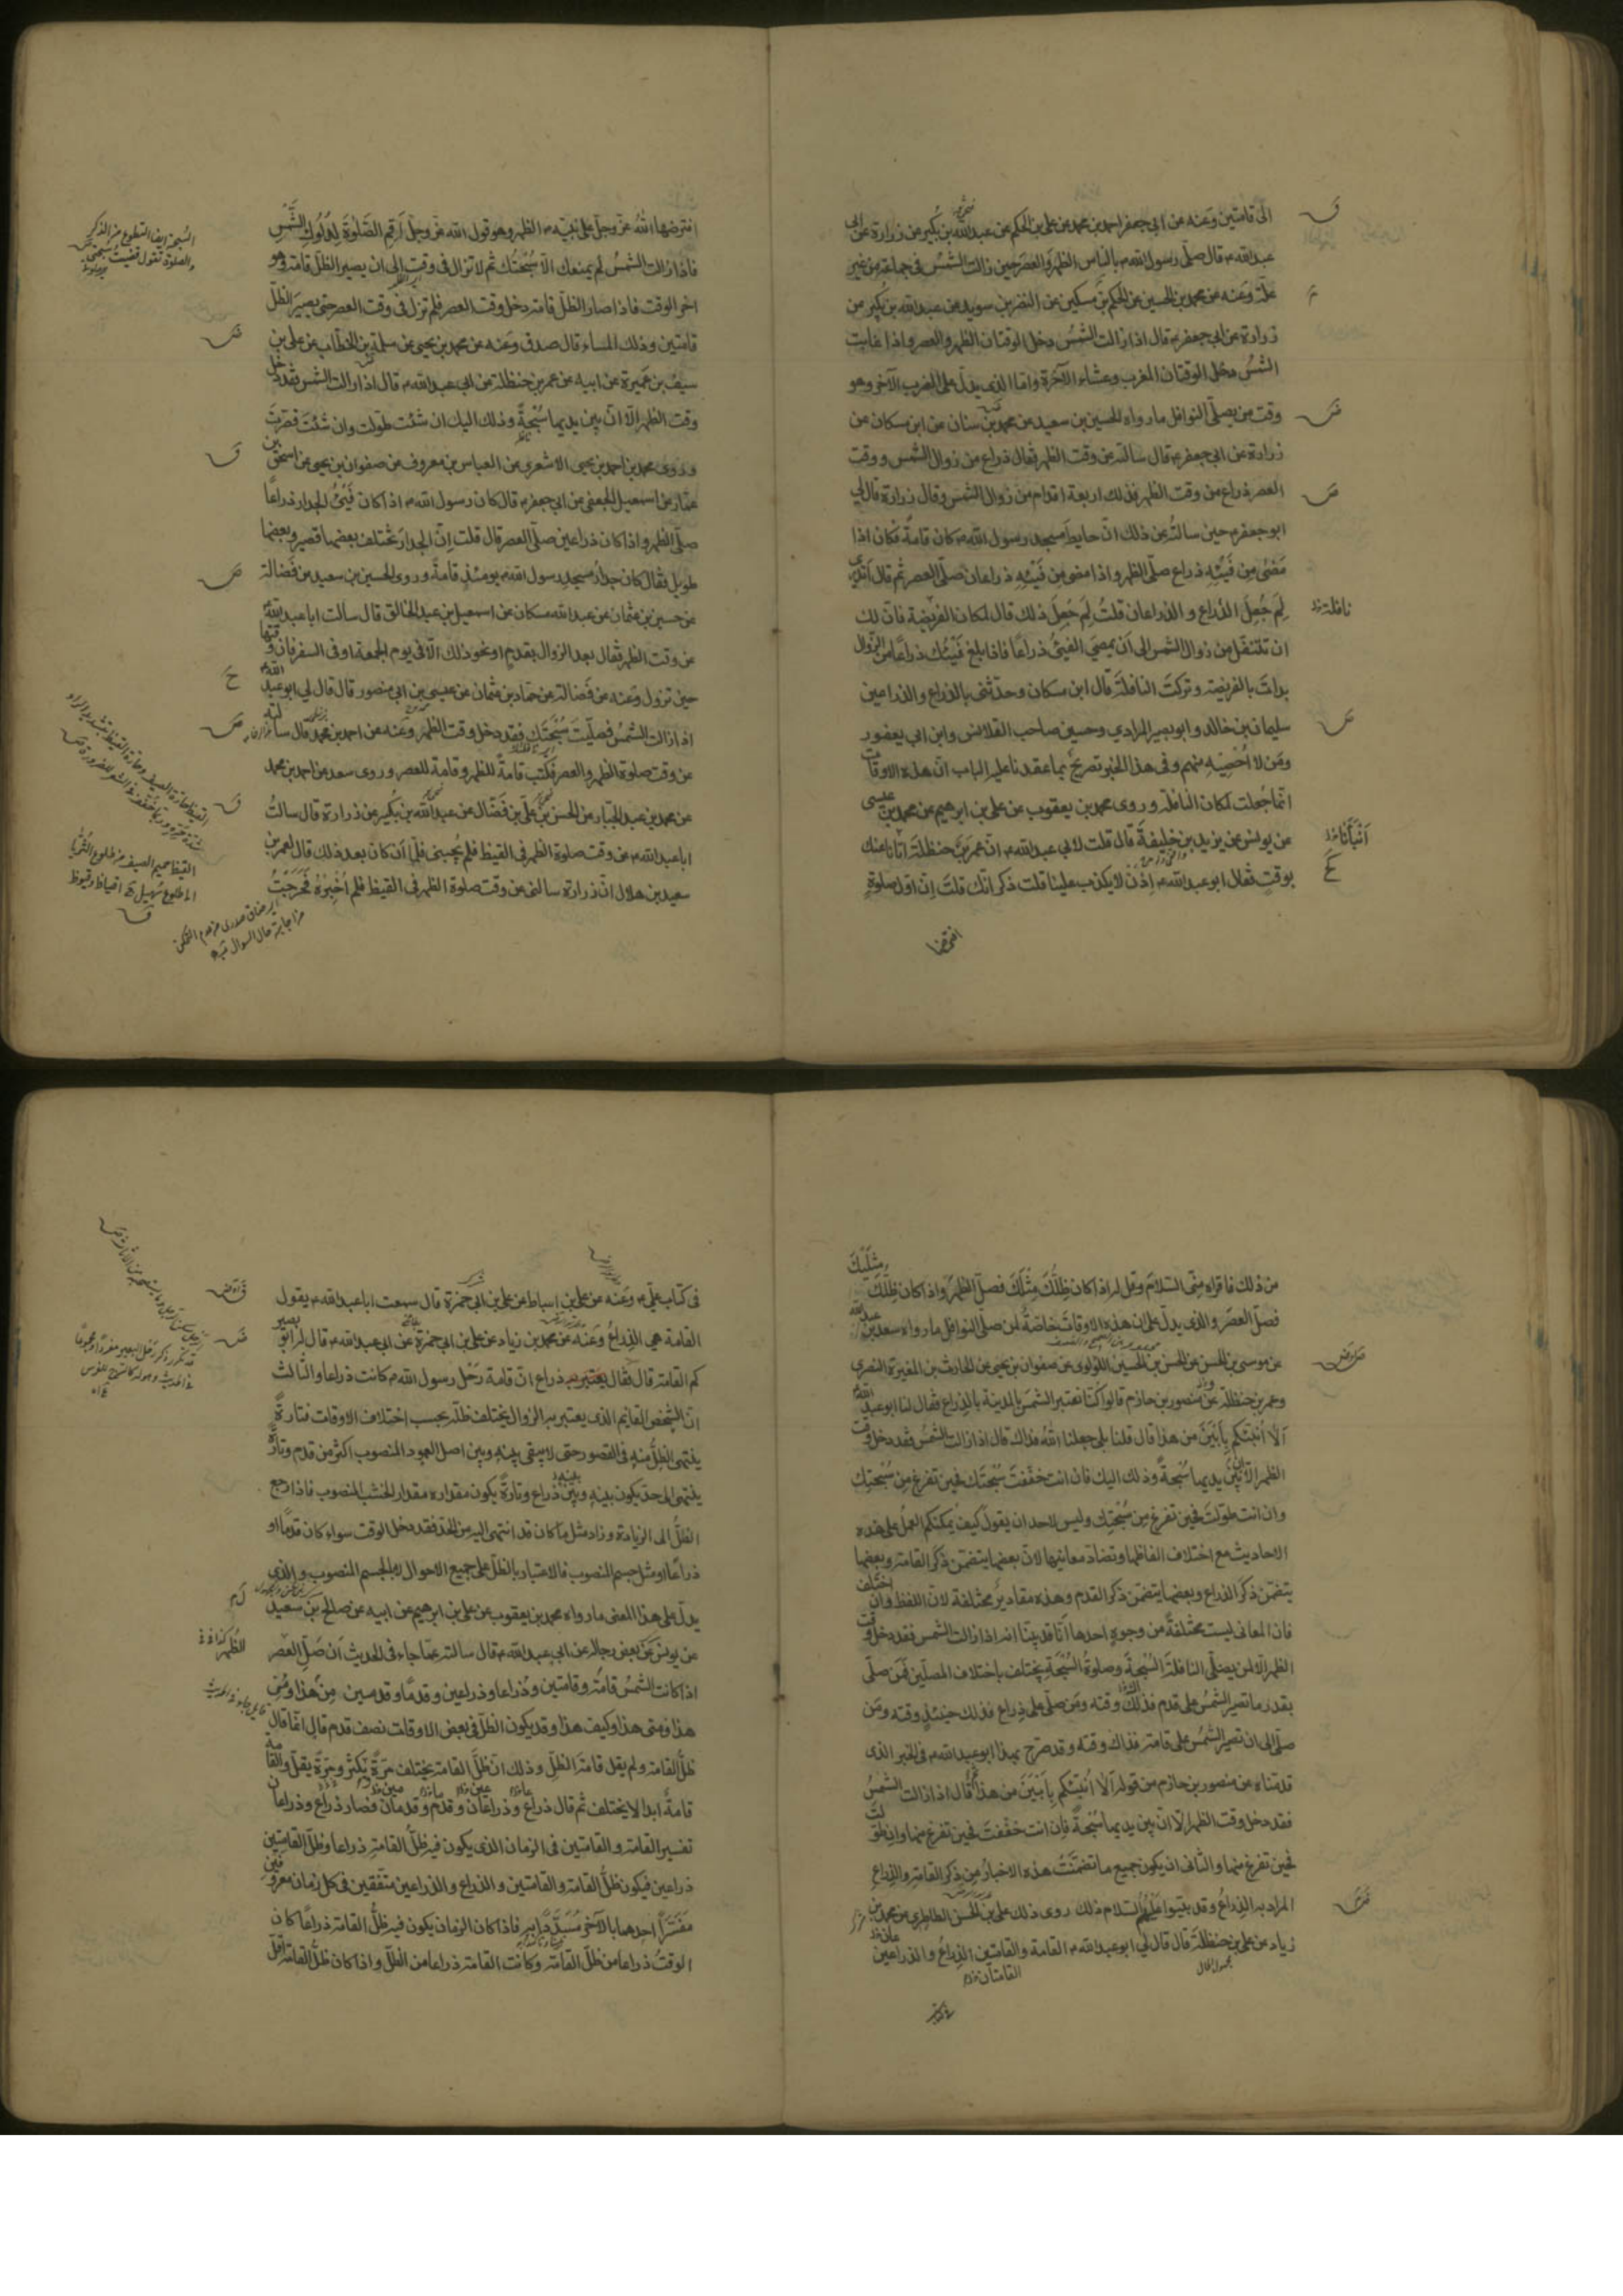 الى قامتين وعنه عن ابي جعفر احمد بن محمد عن علي بن الحكم عن عبدالله بن بكير عن زرارة عن ابي
عبدالله ع قال صلّى رسول الله ص بالناس الظهر والعصر حين زالت الشمس في جماعة من غير
علة وعنه عن محمد بن الحسين عن الحكم بن مسكين عن النضر بن سويد عن عبدالله بن بكير عن
زرارة عن ابي جعفر ع قال اذا زالت الشمس دخل الوقتان الظهر والعصر واذا غابت
الشمس دخل الوقتان المغرب وعشاء الآخرة واما الذي يدلّ على الضرب الآخر وهو
وقت من يصلّي النوافل ما رواه الحسين بن سعيد عن محمد بن سنان عن ابن مسكان عن
زرارة عن ابي جعفر ع قال سالته عن وقت الظهر فقال ذراع من زوال الشمس ووقت
العصر ذراع من وقت الظهر فذلك اربعة اقدام من زوال الشمس وقال زرارة قال لي
ابو جعفر ع حين سالته عن ذلك انّ حايط مسجد رسول الله ص كان قامة فكان اذا
مضى من فيئه ذراع صلّى الظهر واذا مضى من فيئه ذراعان صلّى العصر ثم قال اتدري
لِمَ جُعِلَ الذراع والذراعان قلتُ لِمَ جُعِلَ ذلك قال لمكان الفريضة فانّ لك
نافلة
ان تتنفّل من زوال الشمس الى ان يمضي الفيئ ذراعًا فاذا بلغ فيئك ذراعًا من الزوال
بدات بالفريضة وتركت النافلة قال ابن مسكان وحدّثني بالذراع والذراعين
سليمان بن خالد وابو بصير المرادي وحسين صاحب القلانس وابن ابي يعفور
ومن لا اُحصيه منهم وفي هذا الخبر تصريح بما عقدنا عليه الباب انّ هذه الاوقات
انّما جُعلت لمكان النافلة وروى محمد بن يعقوب عن علي بن ابرهيم عن محمد بن عيسى
عن يونس عن يزيد بن خليفة قال قلت لابي عبدالله ع انّ عمر بن حنظلة اتانا عنك
بوقت فقال ابو عبدالله ع اِذَن لا يكذب علينا قلت ذكر انّك قلت اِنّ اوّل صلوة
افترضها
افترضها اللهُ عزّ وجلّ على نبيّه ص الظهر وهو قول الله عزّ وجلّ اَقِمِ الصَّلوٰةَ لِدُلُوكِ الشَّمْسِ
فاذا زالت الشمسُ لم يمنعك الّا سُبحتُك ثم لا تزال في وقت الى ان يصير الظلّ قامة وهو
اخر الوقت فاذا صار الظلّ قامة دخل وقت العصر فلم تزل في وقت العصر حتى يصير الظلّ
قامتين وذلك المساء قال صدق وعنه عن محمد بن يحيى عن سلمة بن الخطّاب عن علي بن
سيف بن عميرة عن ابيه عن عمر بن حنظلة عن ابي عبدالله ع قال اذا زالت الشمس فقد دخل
وقت الظهر الّا انّ بين يديها سُبحةً وذلك اليك ان شئت طوّلت وان شئت قصرت
وروى محمد بن احمد بن يحيى الاشعري عن العباس بن معروف عن صفوان بن يحيى عن اسحق بن
عمّار عن اسمعيل الجعفي عن ابي جعفر ع قال كان رسول الله ص اذا كان فَيْئُ الجدار ذراعًا
صلّى الظهر واذا كان ذراعين صلّى العصر قال قلت اِنّ الجدار تختلف بعضها قصير وبعضها
طويل فقال كان جدار مسجد رسول الله ص يومئذٍ قامةً وروى الحسين بن سعيد عن فضالة
عن حسين بن عثمان عن عبدالله مسكان عن اسمعيل بن عبد الخالق قال سالت ابا عبدالله ع
عن وقت الظهر فقال بعد الزوال بقدمٍ او نحو ذلك الّا في يوم الجمعة او في السفر فان وقتها
حين تزول وعنه عن فضالة عن حمّاد بن عثمان عن عيسى بن ابي منصور قال قال لي ابو عبدالله ع
اذا زالت الشمسُ فصلّيت سُبحتَك فقد دخل وقت الظهر وعنه عن احمد بن محمد قال سالته
عن وقت صلوة الظهر والعصر فكتب قامةً للظهر وقامة للعصر وروى سعد عن احمد بن محمد
عن محمد بن عبد الجبّار عن الحسن بن علي بن فضّال عن عبدالله بن بكير عن زرارة قال سالتُ
ابا عبدالله ع عن وقت صلوة الظهر في القيظ فلم يُجبني فلمّا اَن كان بعد ذلك قال لعمر بن
سعيد بن هلال انّ زرارة سالني عن وقت صلوة الظهر في القيظ فلم اُخبِرْهُ فَحَرَجْتُ
من ذلك فاقراه منّي السّلام وقل له اذا كان ظِلُّكَ مِثْلَكَ فصلّ الظهر واذا كان ظلّك مِثلَيك
فصلّ العصر والذي يدلّ على ان هذه الاوقات خاصّة لمن صلّى النوافل ما رواه سعد بن عبدالله
عن موسى بن الحسن عن الحسن بن الحسين اللؤلوي عن صفوان بن يحيى عن الحارث بن المغيرة النصري
وعمر بن حنظلة عن منصور بن حازم قالوا كنّا نعتبر الشمس بالمدينة بالذراع فقال لنا ابو عبدالله ع
اَلا اُنبّئكم بِاَبْيَنَ من هذا قال قلنا بلى جعلنا اللهُ فداك قال اذا زالت الشمس فقد دخل وقت
الظهر الّا انّ بين يديها سُبحةً وذلك اليك فان انت خفّفتَ سُبحتَك فحين تفرغ من سُبحتِك
وان انت طوّلت فحين تفرغ من سُبحتِك وليس لاحد ان يقول كيف يمكنكم العمل على هذه
الاحاديث مع اختلاف الفاظها وتضادّ معانيها لانّ بعضها يتضمّن ذكر القامة وبعضها
يتضمّن ذكر الذراع وبعضها يتضمّن ذكر القدم وهذه مقاديرُ مختلفة لانّ اللفظ وان اختلف
فان المعاني ليست مختلفة من وجوهٍ احدها انّا قد بيّنا انه اذا زالت الشمس فقد دخل وقت
الظهر الّا لمن يصلّي النافلة السُبحةَ وصلوةُ السُبحةِ يختلف باختلاف المصلّين فمن صلّى
بقدر ما تصير الشمسُ على قدم فذلك وقته ومن صلّى على ذراع فذلك حينئذٍ وقته ومن
صلّى الى ان تصير الشمسُ على قامة فذاك وقته وقد صرّح بهذا ابو عبدالله ع في الخبر الذي
قدمناه عن منصور بن حازم من قوله اَلا اُنبّئكم بِاَبْيَنَ من هذا ثم قال اذا زالت الشمسُ
فقد دخل وقت الظهر الّا انّ بين يديها سُبحةً فان انت خفّفت فحين تفرغ منها وان طوّلت
فحين تفرغ منها والثاني ان يكون جميع ما تضمّنَتْ هذه الاخبار من ذكر القامة والذراع
المراد به الذراع وقد بيّنوا عليهم السّلام ذلك روى ذلك علي بن الحسن الطاطري عن محمد بن
زياد عن علي بن حنظلة قال قال لي ابو عبدالله ع القامة والقامتين الذراعُ والذراعين
القامتان
في كتاب عليّ ع وعنه عن علي بن اسباط عن علي بن ابي حمزة قال سمعت ابا عبدالله ع يقول
القامة هي الذراعُ وعنه عن محمد بن زياد عن علي بن ابي حمزة عن ابي عبدالله ع قال له ابو بصير
كم القامة قال فقال ذراع انّ قامة رَحْل رسول الله ص كانت ذراعا والثالث
انّ الشخص القايم الذي يعتبر به الزوال يختلف ظلّه بحسب اختلاف الاوقات فتارةً
ينتهي الظلُّ منه في القصور حتى لا يبقى بينه وبين اصل العمود المنصوب اكثر من قدم وتارةً
ينتهي الى حدّ يكون بينه وبين ذراع وتارةً يكون مقداره مقدار الخشب المنصوب فاذا رجع
الظلُّ الى الزيادة وزاد مثل ما كان قد انتهى اليه من الحدّ فقد دخل الوقت سواء كان قدمًا او
ذراعًا او مثل جسم المنصوب فالاعتبار بالظلّ على جميع الاحوال لا بالجسم المنصوب والذي
يدلّ على هذا المعنى ما رواه محمد بن يعقوب عن علي بن ابرهيم عن ابيه عن صالح بن سعيد
عن يونس عن بعض رجاله عن ابي عبدالله ع قال سالته عمّا جاء في الحديث اَن صَلّ العصر
اذا كانت الشمسُ قامة وقامتين وذراعا وذراعين وقدمًا وقدمين من هذا ومن
هذا فمتى هذا وكيف هذا وقد يكون الظلّ في بعض الاوقات نصف قدم قال انّما قال
ظلُّ القامة ولم يقل قامة الظلّ وذلك انّ ظلَّ القامة يختلف مرّةً يكثر ومرّةً يقلّ والقامة
قامةٌ ابدا لا يختلف ثم قال ذراع وذراعان وقدم وقدمان فصار ذراع وذراعان
تفسير القامة والقامتين في الزمان الذي يكون فيه ظلُّ القامة ذراعا وظلّ القامتين
ذراعين فيكون ظلُّ القامة والقامتين والذراع والذراعين متّفقين في كل زمان معروفين
مفسّرًا احدهما بالآخر مُسَدَّدًا به فاذا كان الزمان يكون فيه ظلُّ القامة ذراعًا كان
الوقتُ ذراعا من ظلّ القامة وكانت القامة ذراعا من الظلّ واذا كان ظلُّ القامة اقلّ